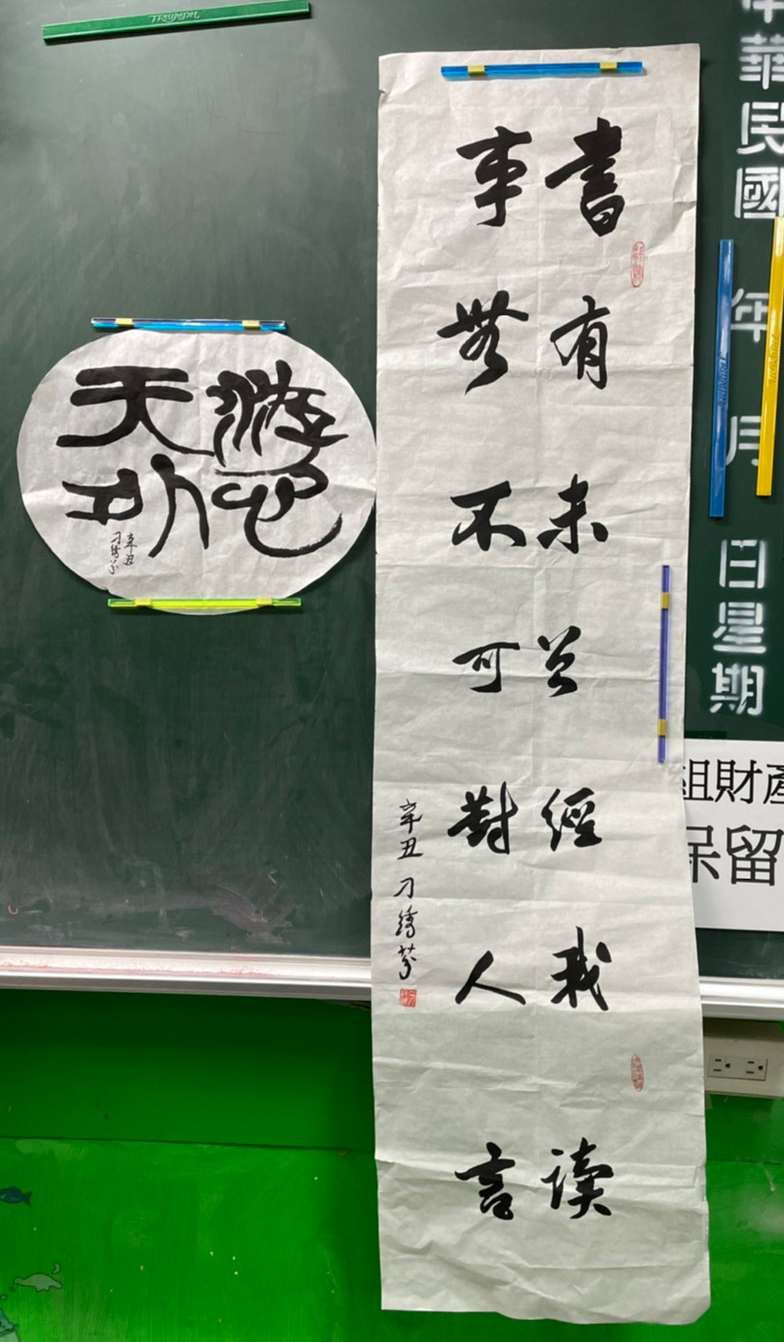 中華民國 年 月 日 星期
組財產
保留
書有未曾經我讀
事無不可對人言
辛丑
游心
天功
辛丑
TRIUMPH